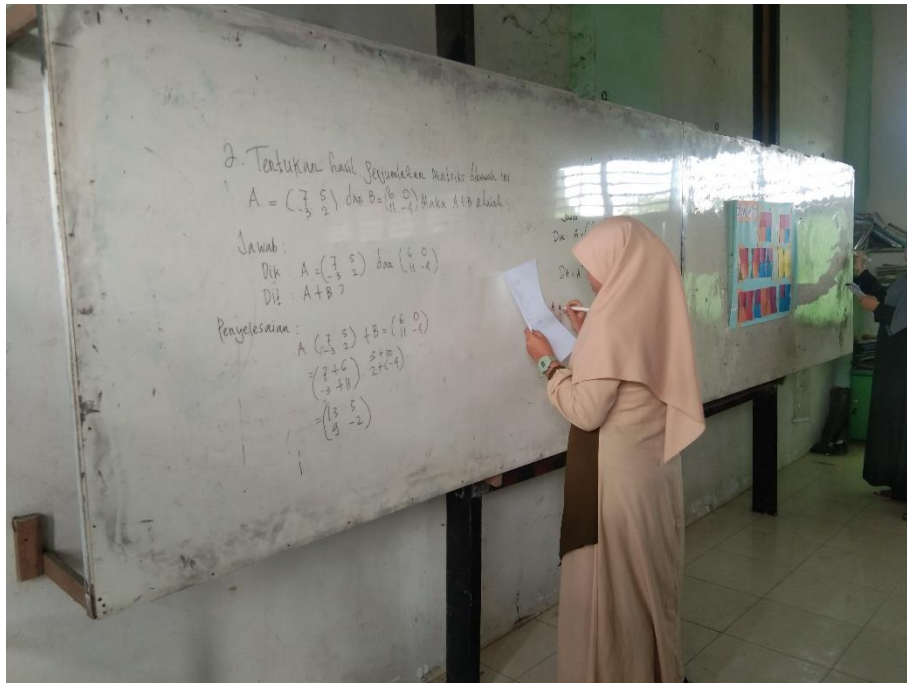 2. Tentukan hasil Penjumlahan Matriks dibawah ini
A = (7 5 dan B = (6 0 Maka A+B adalah
-3 2) 11 -4)
Jawab :
Dik : A = (7 5 dan (6 0
-3 2) 11 -4)
Dit : A+B ?
Penyelesaian :
A (7 5 + B = (6 0
-3 2) 11 -4)
= (7+6 5+0
-3+11 2+(-4))
= (13 5
9 -2)
Jawab
Dik
Dit : A